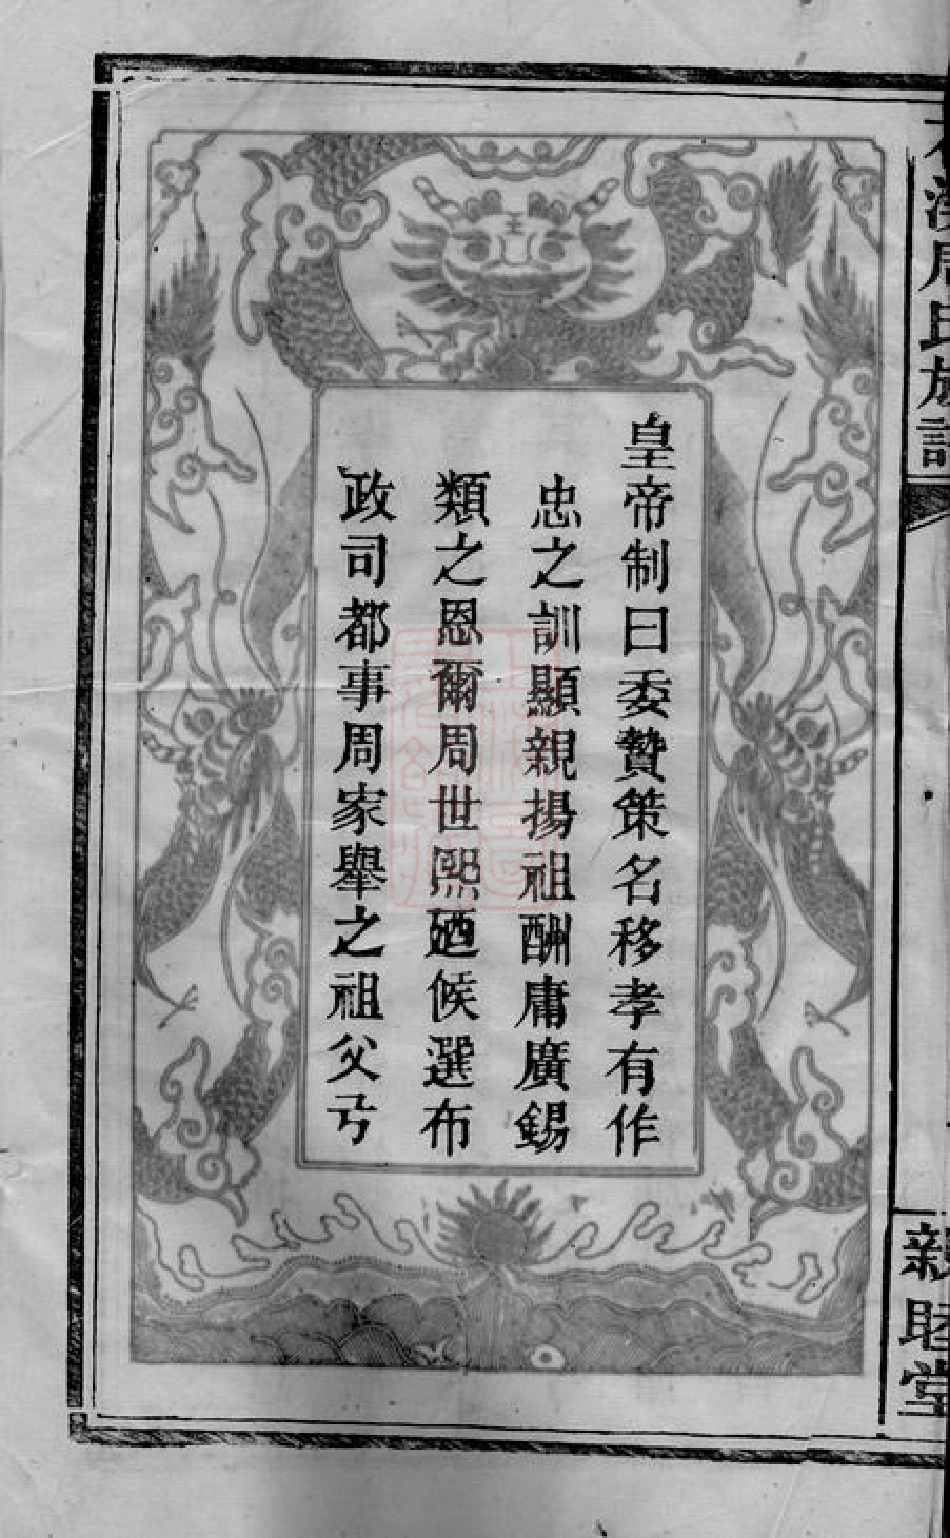 皇帝制曰委贄策名移孝有作
忠之訓顯親揚祖酬庸廣錫
類之恩爾周世熙廼候選布
政司都事周家舉之祖父
溪周氏族譜
親睦堂